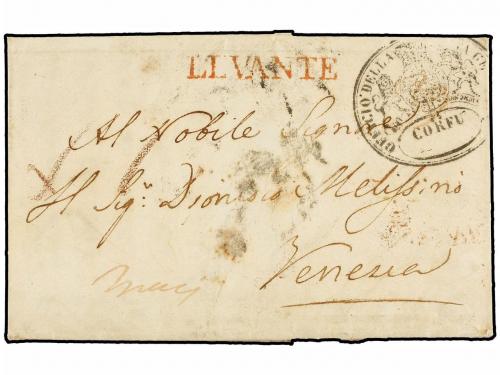 LEVANTE
UFFICIO DELLA
CORFU
Al Nobile Signore
Il Sigr. Dionisio Melissinò
Venezia